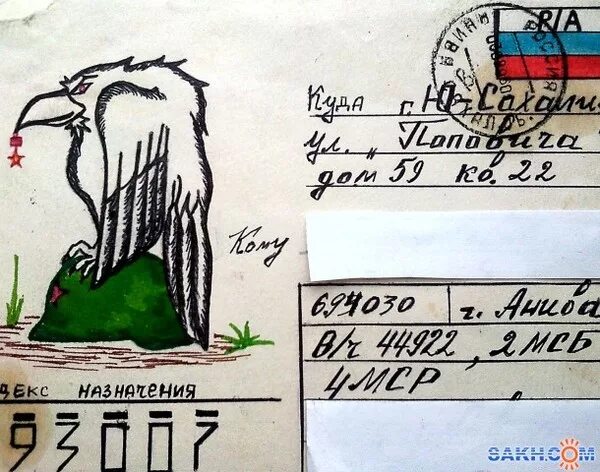 R/A
РОССИЯ
АНИВА
Куда г. Юж-Сахали
ул. „Поповича"
дом 59 кв. 22
Кому
694030 г. Анива
В/ч 44922, 2МСБ
4МСР
ДЕКС НАЗНАЧЕНИЯ
93007
SAKH.COM